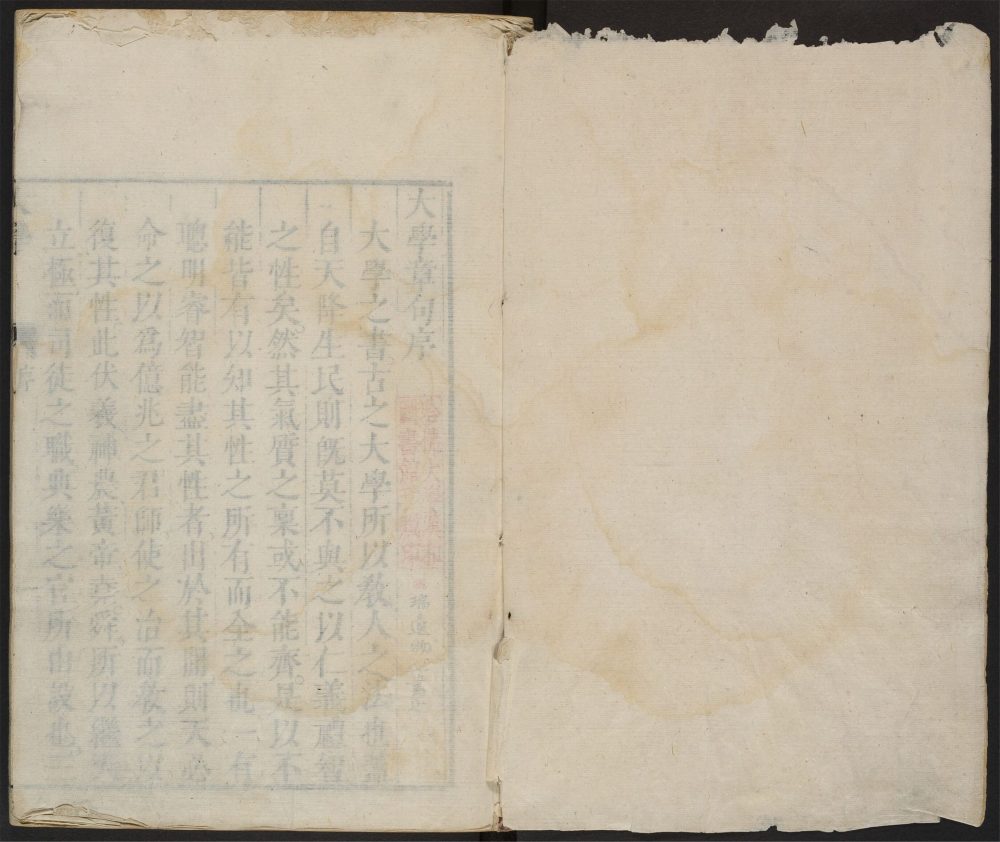 大學章句序
大學之書古之大學所以教人之法也蓋
自天降生民則既莫不與之以仁義禮智
之性矣然其氣質之稟或不能齊是以不
能皆有以知其性之所有而全之也一有
聰明睿智能盡其性者出於其閒則天必
命之以爲億兆之君師使之治而敎之以
復其性此伏羲神農黃帝堯舜所以繼天
立極而司徒之職典樂之官所由設也三
序